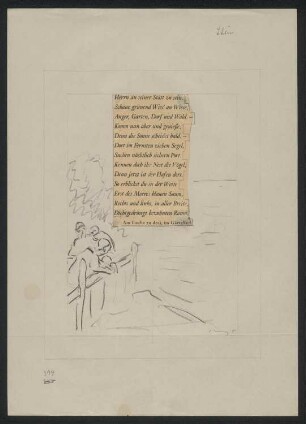 Herrn an seiner Statt zu sein,
Schaue grünend Wies' an Wiese,
Anger, Garten, Dorf und Wald.
Komm nun aber und genieße,
Denn die Sonne scheidet bald.
Dort im Fernsten ziehen Segel,
Suchen nächtlich sichern Port.
Kennen doch ihr Nest die Vögel,
Denn jetzt ist der Hafen dort.
So erblickst du in der Weite
Erst des Meeres blauen Saum,
Rechts und links, in aller Breite,
Dichtgedrängt bewohnten Raum.